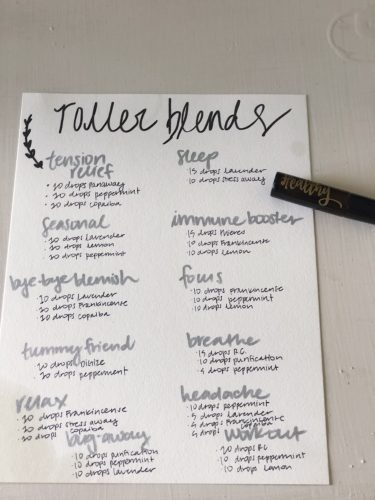 Roller blends
tension
relief
• 20 drops panaway
• 20 drops peppermint
• 20 drops copaiba
seasonal
• 20 drops lavender
• 20 drops lemon
• 20 drops peppermint
bye-bye blemish
- 20 drops lavender
- 20 drops Frankincense
- 20 drops copaiba
tummy friend
- 20 drops Digize
- 20 drops peppermint
relax
- 20 drops Frankincense
- 20 drops stress away
- 20 drops copaiba
bug-away
- 10 drops purification
- 10 drops peppermint
- 10 drops lavender
sleep
- 15 drops lavender
- 10 drops stress away
Healthy
immune booster
- 15 drops thieves
- 10 drops Frankincense
- 10 drops lemon
focus
- 10 drops Frankincense
- 10 drops peppermint
- 10 drops lemon
breathe
- 15 drops R.C.
- 10 drops purification
- 5 drops peppermint
headache
- 10 drops peppermint
- 5 drops lavender
- 5 drops Frankincense
- 5 drops copaiba
workout
- 20 drops RC
- 10 drops peppermint
- 10 drops lemon